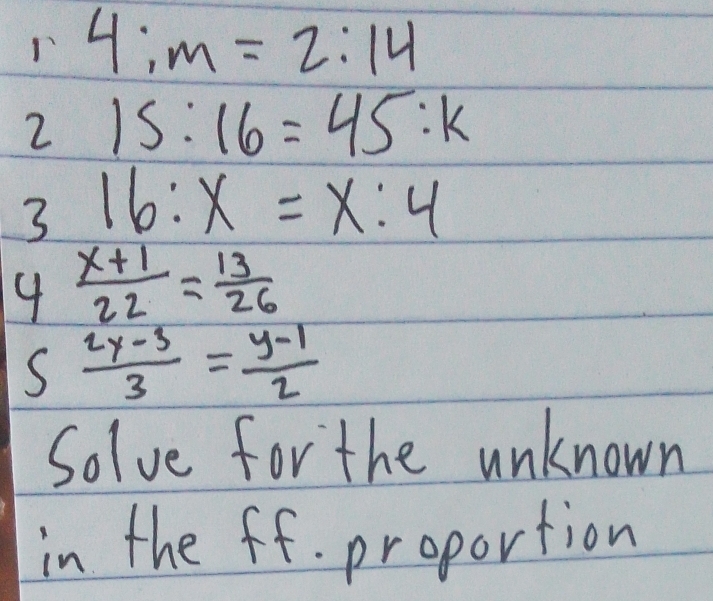 1 4:m = 2:14
2 15:16 = 45:k
3 16:X = X:4
4 x+1/22 = 13/26
5 2y-3/3 = y-1/2
Solve for the unknown
in the ff. proportion